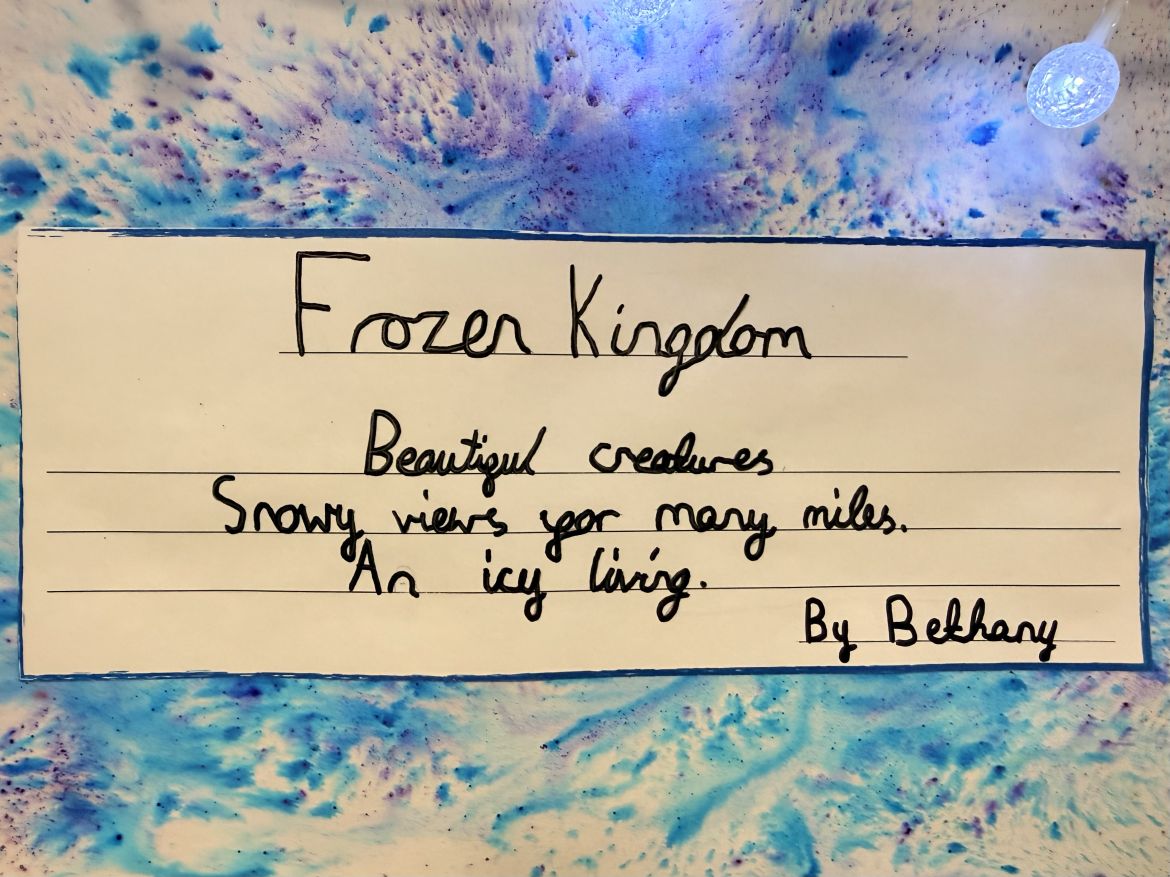 Frozen Kingdom
Beautiful creatures
Snowy views for many miles.
An icy living.
By Bethany